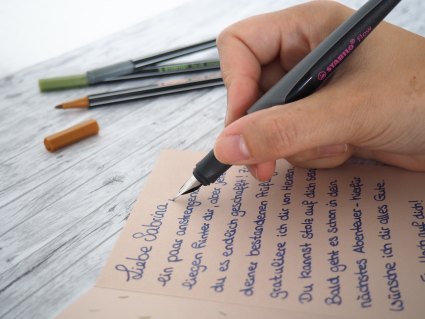 STABILO Flow
Liebe Sabrina
ein paar anstrengen
liegen hinter dir aber
du es endlich geschafft!
deiner bestandenen
gratuliere ich dir von Herzen
Du kannst stolz auf dich sein
Bald geht es schon in dein
nächstes Abenteuer - hiefür
wünsche ich dir alles Gute.
auf dich!